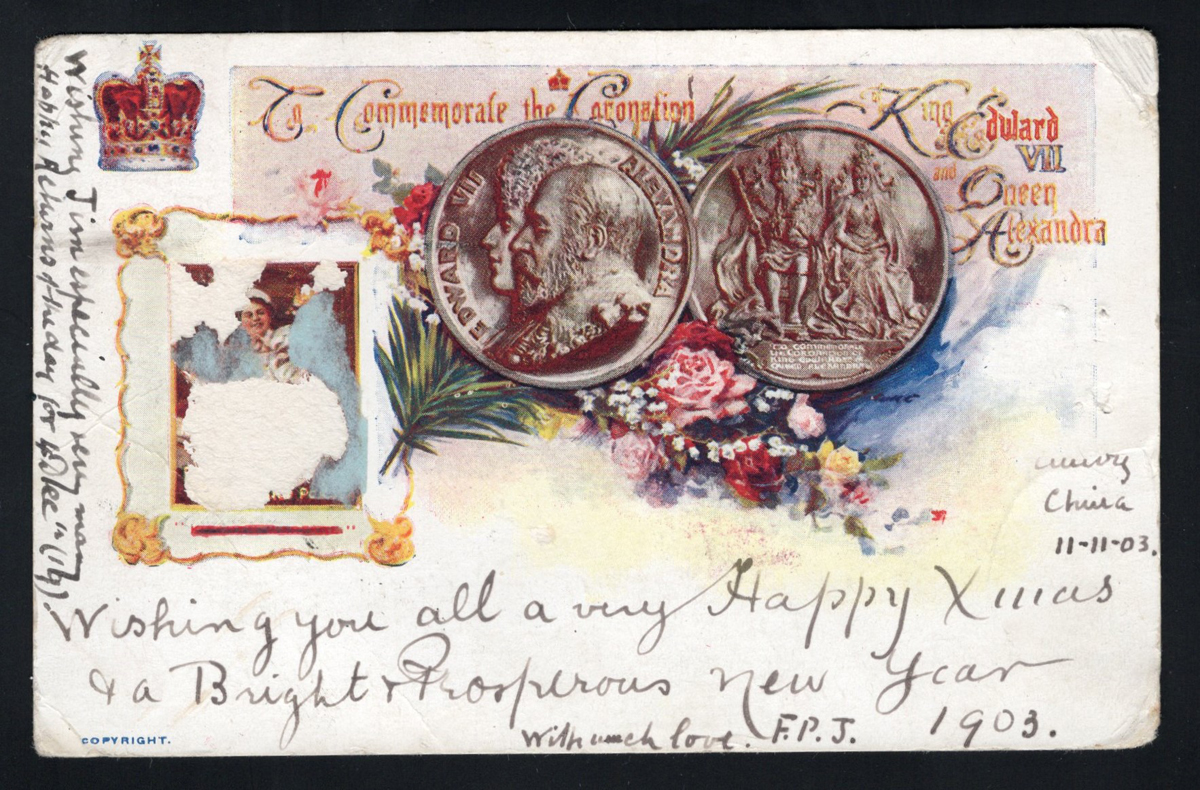 To Commemorate the Coronation
King Edward
VII
and Queen
Alexandra
EDWARD VII ALEXANDRA
TO COMMEMORATE
THE CORONATION OF
KING EDWARD &
QUEEN ALEXANDRA
Wishing Jim especially very many
Happy Returns of the day for
China
11-11-03.
Wishing you all a very Happy Xmas
& a Bright & Prosperous New Year
1903.
With much love. F.P.J.
COPYRIGHT.